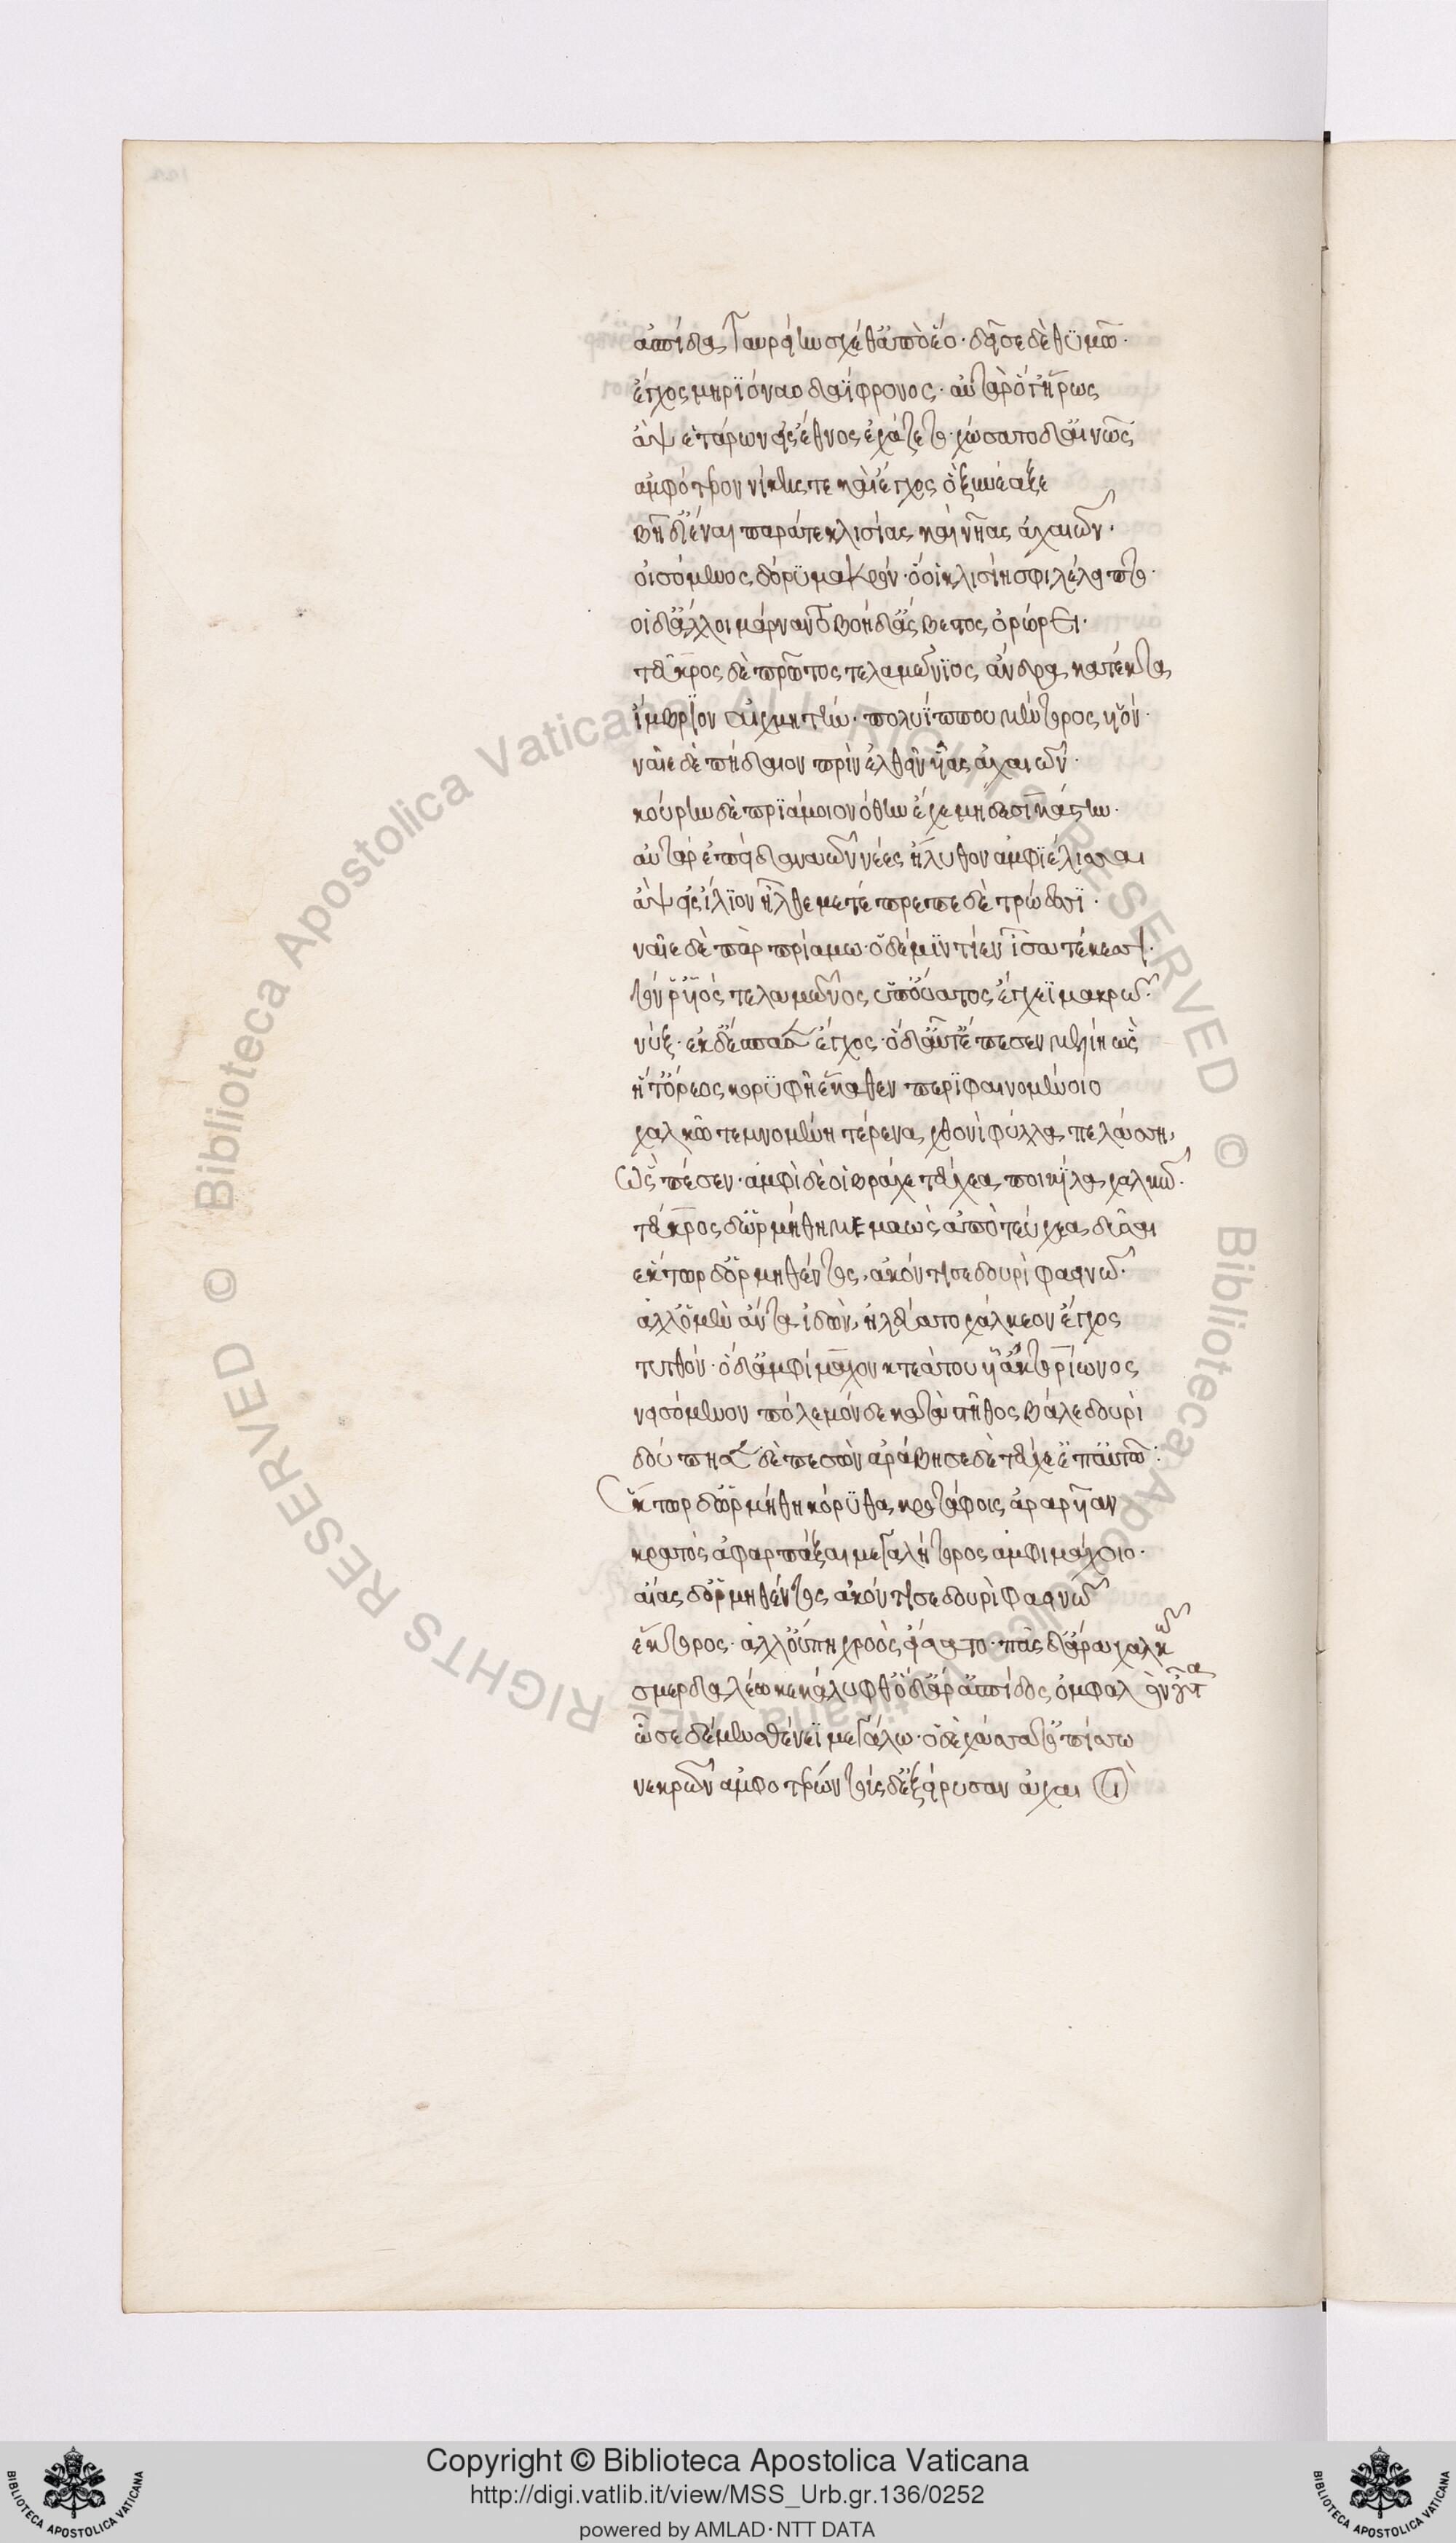 ἀσπίδα ταυρείην σχέθ' ἀπὸ ἕο· δεῖσε δὲ θυμῶ·
ἔγχος μηριόναο δαΐφρονος· αὐτὰρ ὅ γ' ἥρως
ἂψ ἑτάρων εἰς ἔθνος ἐχάζετο· χώσατο δ' αἰνῶς
ἀμφότερον νίκης τε καὶ ἔγχος ὃ ξυνέαξε
βῆ δ' ἰέναι παρά τε κλισίας καὶ νῆας ἀχαιῶν·
οἰσόμενος δόρυ μακρόν· ὅ οἱ κλισίηφι λέλειπτο·
οἱ δ' ἄλλοι μάρναντο βοὴ δ' ἄσβεστος ὀρώρει·
τεῦκρος δὲ πρῶτος τελαμώνιος ἄνδρα κατέκτα
ἴμβριον αἰχμητὴν· πολυΐππου μέντορος υἱόν·
ναῖε δὲ πήδαιον πρὶν ἐλθεῖν υἷας ἀχαιῶν·
κούρην δὲ πριάμοιο νόθην ἔχε μηδεσικάστην·
αὐτὰρ ἐπεὶ δαναῶν νέες ἤλυθον ἀμφιέλισσαι
ἂψ εἰς ἴλιον ἦλθε μετέπρεπε δὲ τρώεσσι·
ναῖε δὲ πὰρ πριάμω· ὁ δέ μιν τίεν ἶσα τέκεσσι·
τόν ῥ' υἱὸς τελαμῶνος ὑπ' οὔατος ἔγχεϊ μακρῶ·
νύξ· ἐκ δ' ἔσπασεν ἔγχος· ὁ δ' αὖτ' ἔπεσεν μελίη ὣς
ἥ τ' ὄρεος κορυφῆ ἕκαθεν περιφαινομένοιο
χαλκῶ τεμνομένη τέρενα χθονὶ φύλλα πελάσση,
ὣς πέσεν· ἀμφὶ δέ οἱ βράχε τεύχεα ποικίλα χαλκῶ·
τεῦκρος δ' ὡρμήθη μεμαὼς ἀπὸ τεύχεα δῦσαι
ἕκτωρ δ' ὁρμηθέντος, ἀκόντισε δουρὶ φαεινῶ·
ἀλλ' ὁ μὲν ἄντα ἰδὼν, ἠλεύατο χάλκεον ἔγχος
τυτθόν· ὁ δ' ἀμφίμαχον κτεάτου υἷ' ἀκτορίωνος
νεισόμενον πόλεμόνδε κατὰ στῆθος βάλε δουρὶ
δούπησεν δὲ πεσὼν ἀράβησε δὲ τεύχε' ἐπ' αὐτῶ·
ἕκτωρ δ' ὡρμήθη κόρυθα κροτάφοις ἀραρυῖαν
κρατὸς ἀφαρπάξαι μεγαλήτορος ἀμφιμάχοιο·
αἴας δ' ὁρμηθέντος ἀκόντισε δουρὶ φαεινῶ
ἕκτορος· ἀλλ' οὔπη χροὸς εἴσατο· πᾶς δ' ἄρα χαλκῶ
σμερδαλέω κεκάλυφθ' ὁ δ' ἄρ' ἀσπίδος ὀμφαλὸν οὖτα
ὦσε δέ μιν σθένεϊ μεγάλω· ὁ δὲ χάσσατο ὀπίσσω
νεκρῶν ἀμφοτέρων τοὺς δ' ἐξείρυσαν ἀχαιοὶ
Copyright © Biblioteca Apostolica Vaticana
http://digi.vatlib.it/view/MSS_Urb.gr.136/0252
powered by AMLAD·NTT DATA